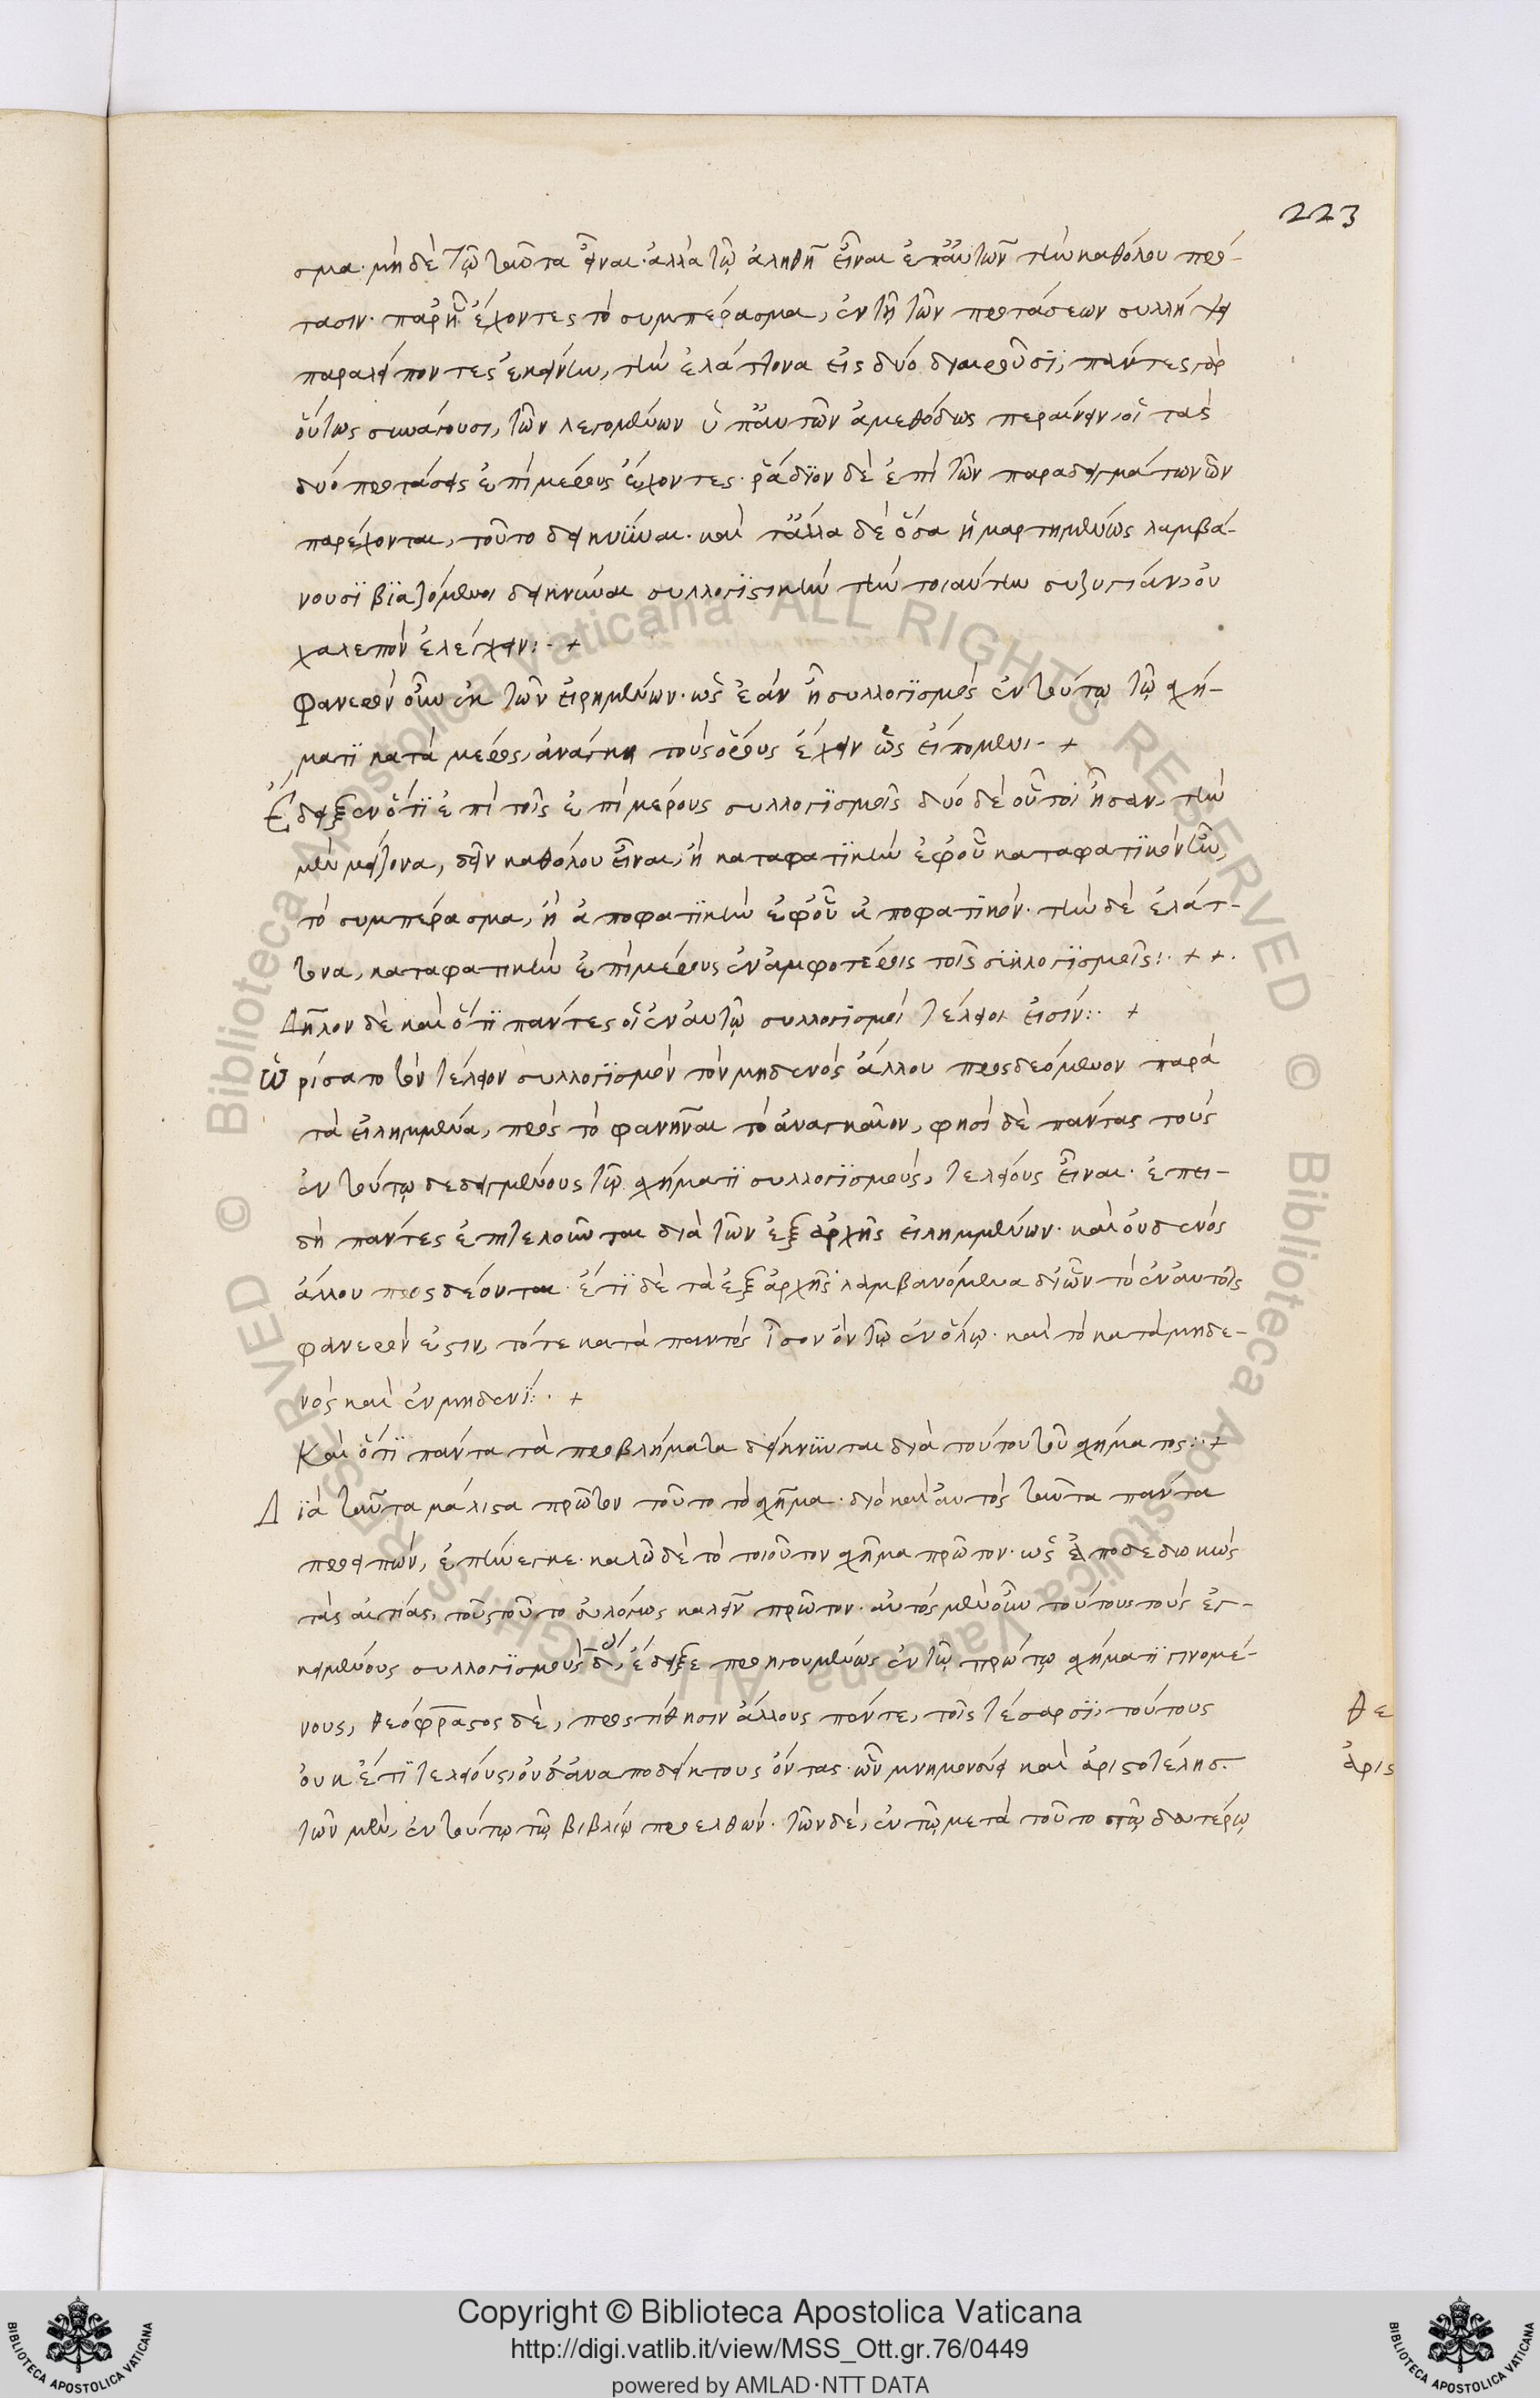 223
σμα· μὴ δὲ τῷ ταῦτα εἶναι· ἀλλὰ τῷ ἀληθῆ εἶναι ἐπ' αὐτῶν τὴν καθόλου πρό-
τασιν· παρ' ἧς ἔχοντες τὸ συμπέρασμα, ἐν τῇ τῶν προτάσεων συλλήψει
παραλείποντες ἐκείνην, τὴν ἐλάττονα εἰς δύο διαιροῦσι, πάντες γὰρ
οὕτως συνάγουσι, τῶν λεγομένων ὑπ' αὐτῶν ἀμεθόδως περαίνειν, οἱ τὰς
δύο προτάσεις ἐπὶ μέρους ἔχοντες· ῥάδιον δὲ ἐπὶ τῶν παραδειγμάτων ὧν
παρέχονται, τοῦτο δεικνύναι· καὶ τἄλλα δὲ ὅσα ἡμαρτημένως λαμβά-
νουσι βιαζόμενοι δεικνύναι συλλογιστικὴν τὴν τοιαύτην συζυγίαν, οὐ
χαλεπὸν ἐλέγχειν:· +
Φανερὸν οὖν ἐκ τῶν εἰρημένων· ὡς ἐὰν ᾖ συλλογισμὸς ἐν τούτῳ τῷ σχή-
ματι κατὰ μέρος, ἀνάγκη τοὺς ὅρους ἔχειν ὡς εἴπομεν:· +
Ἔδειξεν ὅτι ἐπὶ τοῖς ἐπὶ μέρους συλλογισμοῖς δύο δὲ οὗτοι ἦσαν, τὴν
μὲν μείζονα, δεῖν καθόλου εἶναι, ἢ καταφατικὴν ἐφ' οὗ καταφατικὸν ἦν,
τὸ συμπέρασμα, ἢ ἀποφατικὴν ἐφ' οὗ ἀποφατικόν· τὴν δὲ ἐλάτ-
τονα, καταφατικὴν ἐπὶ μέρους ἐν ἀμφοτέροις τοῖς συλλογισμοῖς:· + +·
Δῆλον δὲ καὶ ὅτι πάντες οἱ ἐν αὐτῷ συλλογισμοὶ τέλειοι εἰσίν:· +
Ὡρίσατο τὸν τέλειον συλλογισμὸν τὸν μηδενὸς ἄλλου προσδεόμενον παρὰ
τὰ εἰλημμένα, πρὸς τὸ φανῆναι τὸ ἀναγκαῖον, φησὶ δὲ πάντας τοὺς
ἐν τούτῳ δεδειγμένους τῷ σχήματι συλλογισμούς, τελείους εἶναι· ἐπει-
δὴ πάντες ἐπιτελοῦνται διὰ τῶν ἐξ ἀρχῆς εἰλημμένων· καὶ οὐδενὸς
ἄλλου προσδέονται· ἔτι δὲ τὰ ἐξ ἀρχῆς λαμβανόμενα δι' ὧν τὸ ἐν αὐτοῖς
φανερόν ἐστιν, τό τε κατὰ παντὸς ἴσον ὂν τῷ ἐν ὅλῳ· καὶ τὸ κατὰ μηδε-
νὸς καὶ ἐν μηδενί:· +
Καὶ ὅτι πάντα τὰ προβλήματα δείκνυται διὰ τούτου τοῦ σχήματος:· +
Διὰ ταῦτα μάλιστα πρῶτον τοῦτο τὸ σχῆμα· διὸ καὶ αὐτὸς ταῦτα πάντα
προειπὼν, ἐπήνεγκε· καλῶ δὲ τὸ τοιοῦτον σχῆμα πρῶτον· ὡς ἀποδεδωκὼς
τὰς αἰτίας, τοῦ τοῦτο εὐλόγως καλεῖν πρῶτον· αὐτὸς μὲν οὖν τούτους τοὺς ἐγ-
κειμένους συλλογισμοὺς δ', ἔδειξε προηγουμένως ἐν τῷ πρώτῳ σχήματι γινομέ-
νους, θεόφραστος δὲ, προστίθησιν ἄλλους πέντε, τοῖς τέσαρσι, τούτους
θε
οὐκ ἔτι τελείους, οὐδ' ἀναποδείκτους ὄντας· ὧν μνημονεύει καὶ ἀριστοτέλης·
ἀρις
τῶν μὲν, ἐν τούτῳ τῷ βιβλίῳ προελθών· τῶν δὲ, ἐν τῷ μετὰ τοῦτο τῷ δευτέρῳ
Copyright © Biblioteca Apostolica Vaticana
http://digi.vatlib.it/view/MSS_Ott.gr.76/0449
powered by AMLAD·NTT DATA